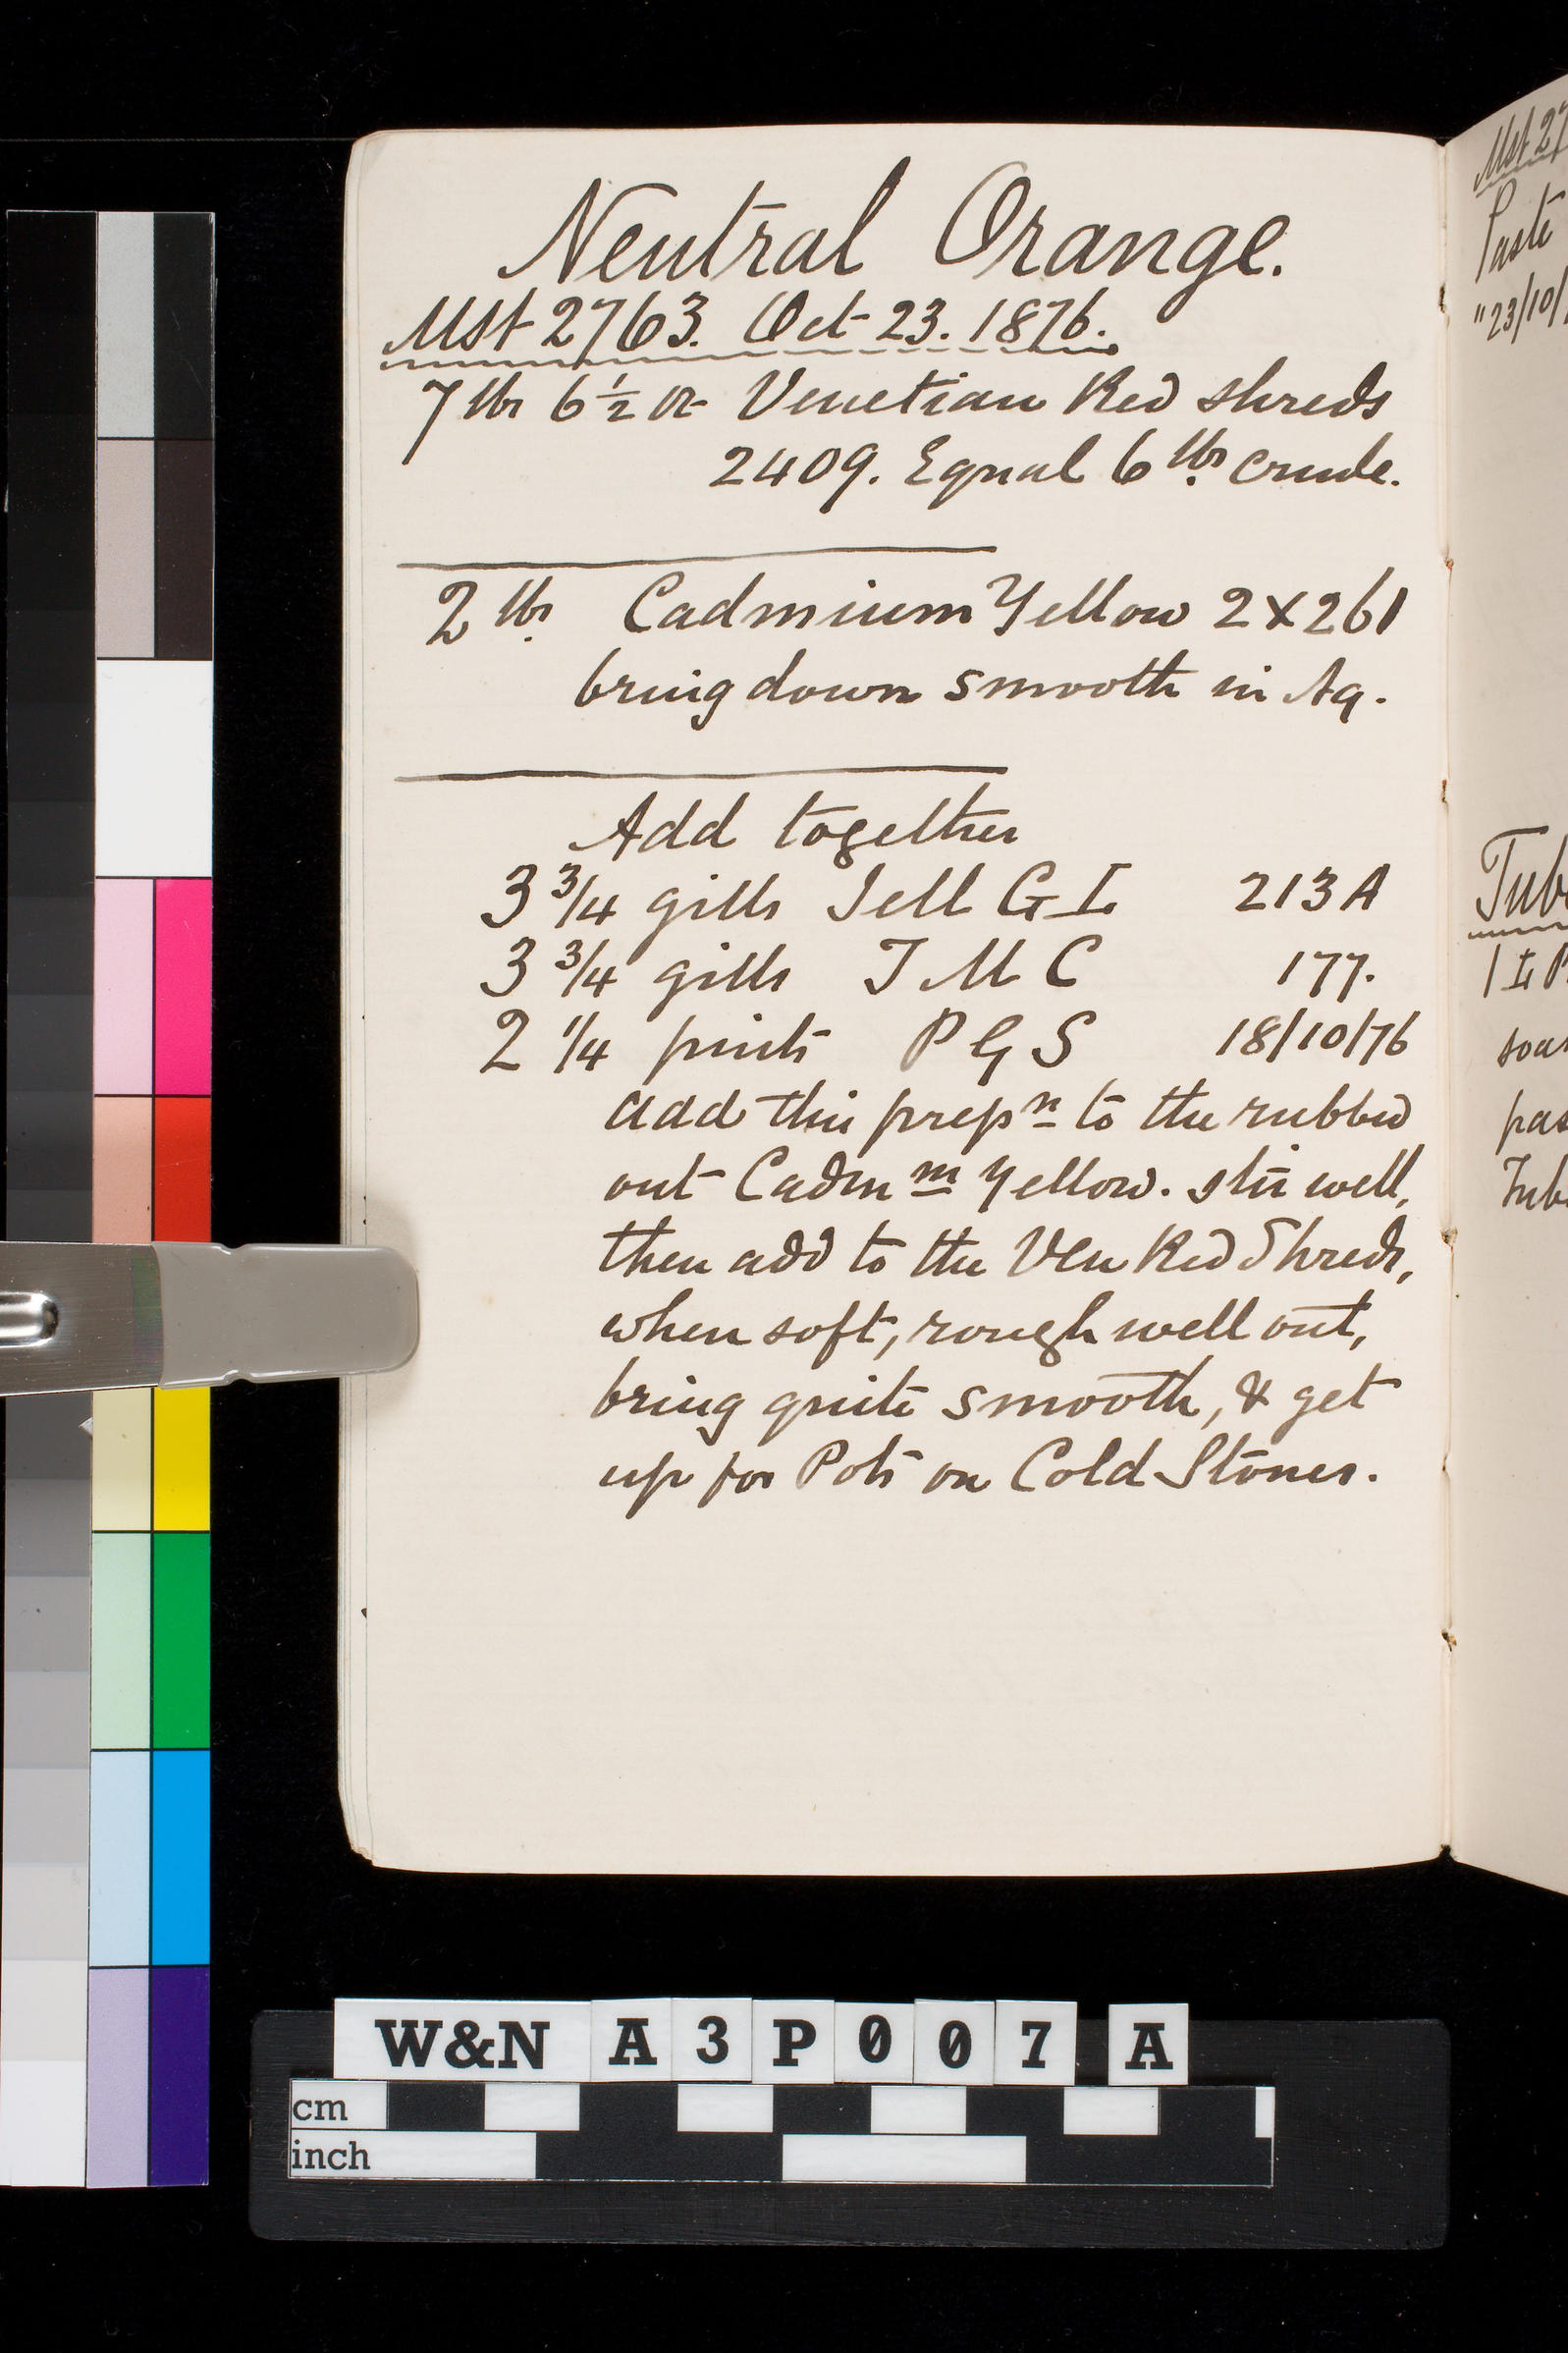 Neutral Orange.
Mst 2763. Oct 23. 1876.
7 lbs 6 1/2 oz Venetian Red shreds
2409. Equal 6 lbs crude.
2 lbs Cadmium Yellow 2X261
bring down smooth in Aq.
Add together
3 3/4 gills Jell G I 213A
3 3/4 gills J M C 177.
2 1/4 pints P G S 18/10/76
add this prepn to the rubbed
out Cadmm Yellow. stir well,
then add to the Ven Red Shreds,
when soft, rough well out,
bring quite smooth, & get
up for Pots on Cold Stones.
Mst 27
Paste
"23/10/
Tub
W&N A3P007 A
cm
inch